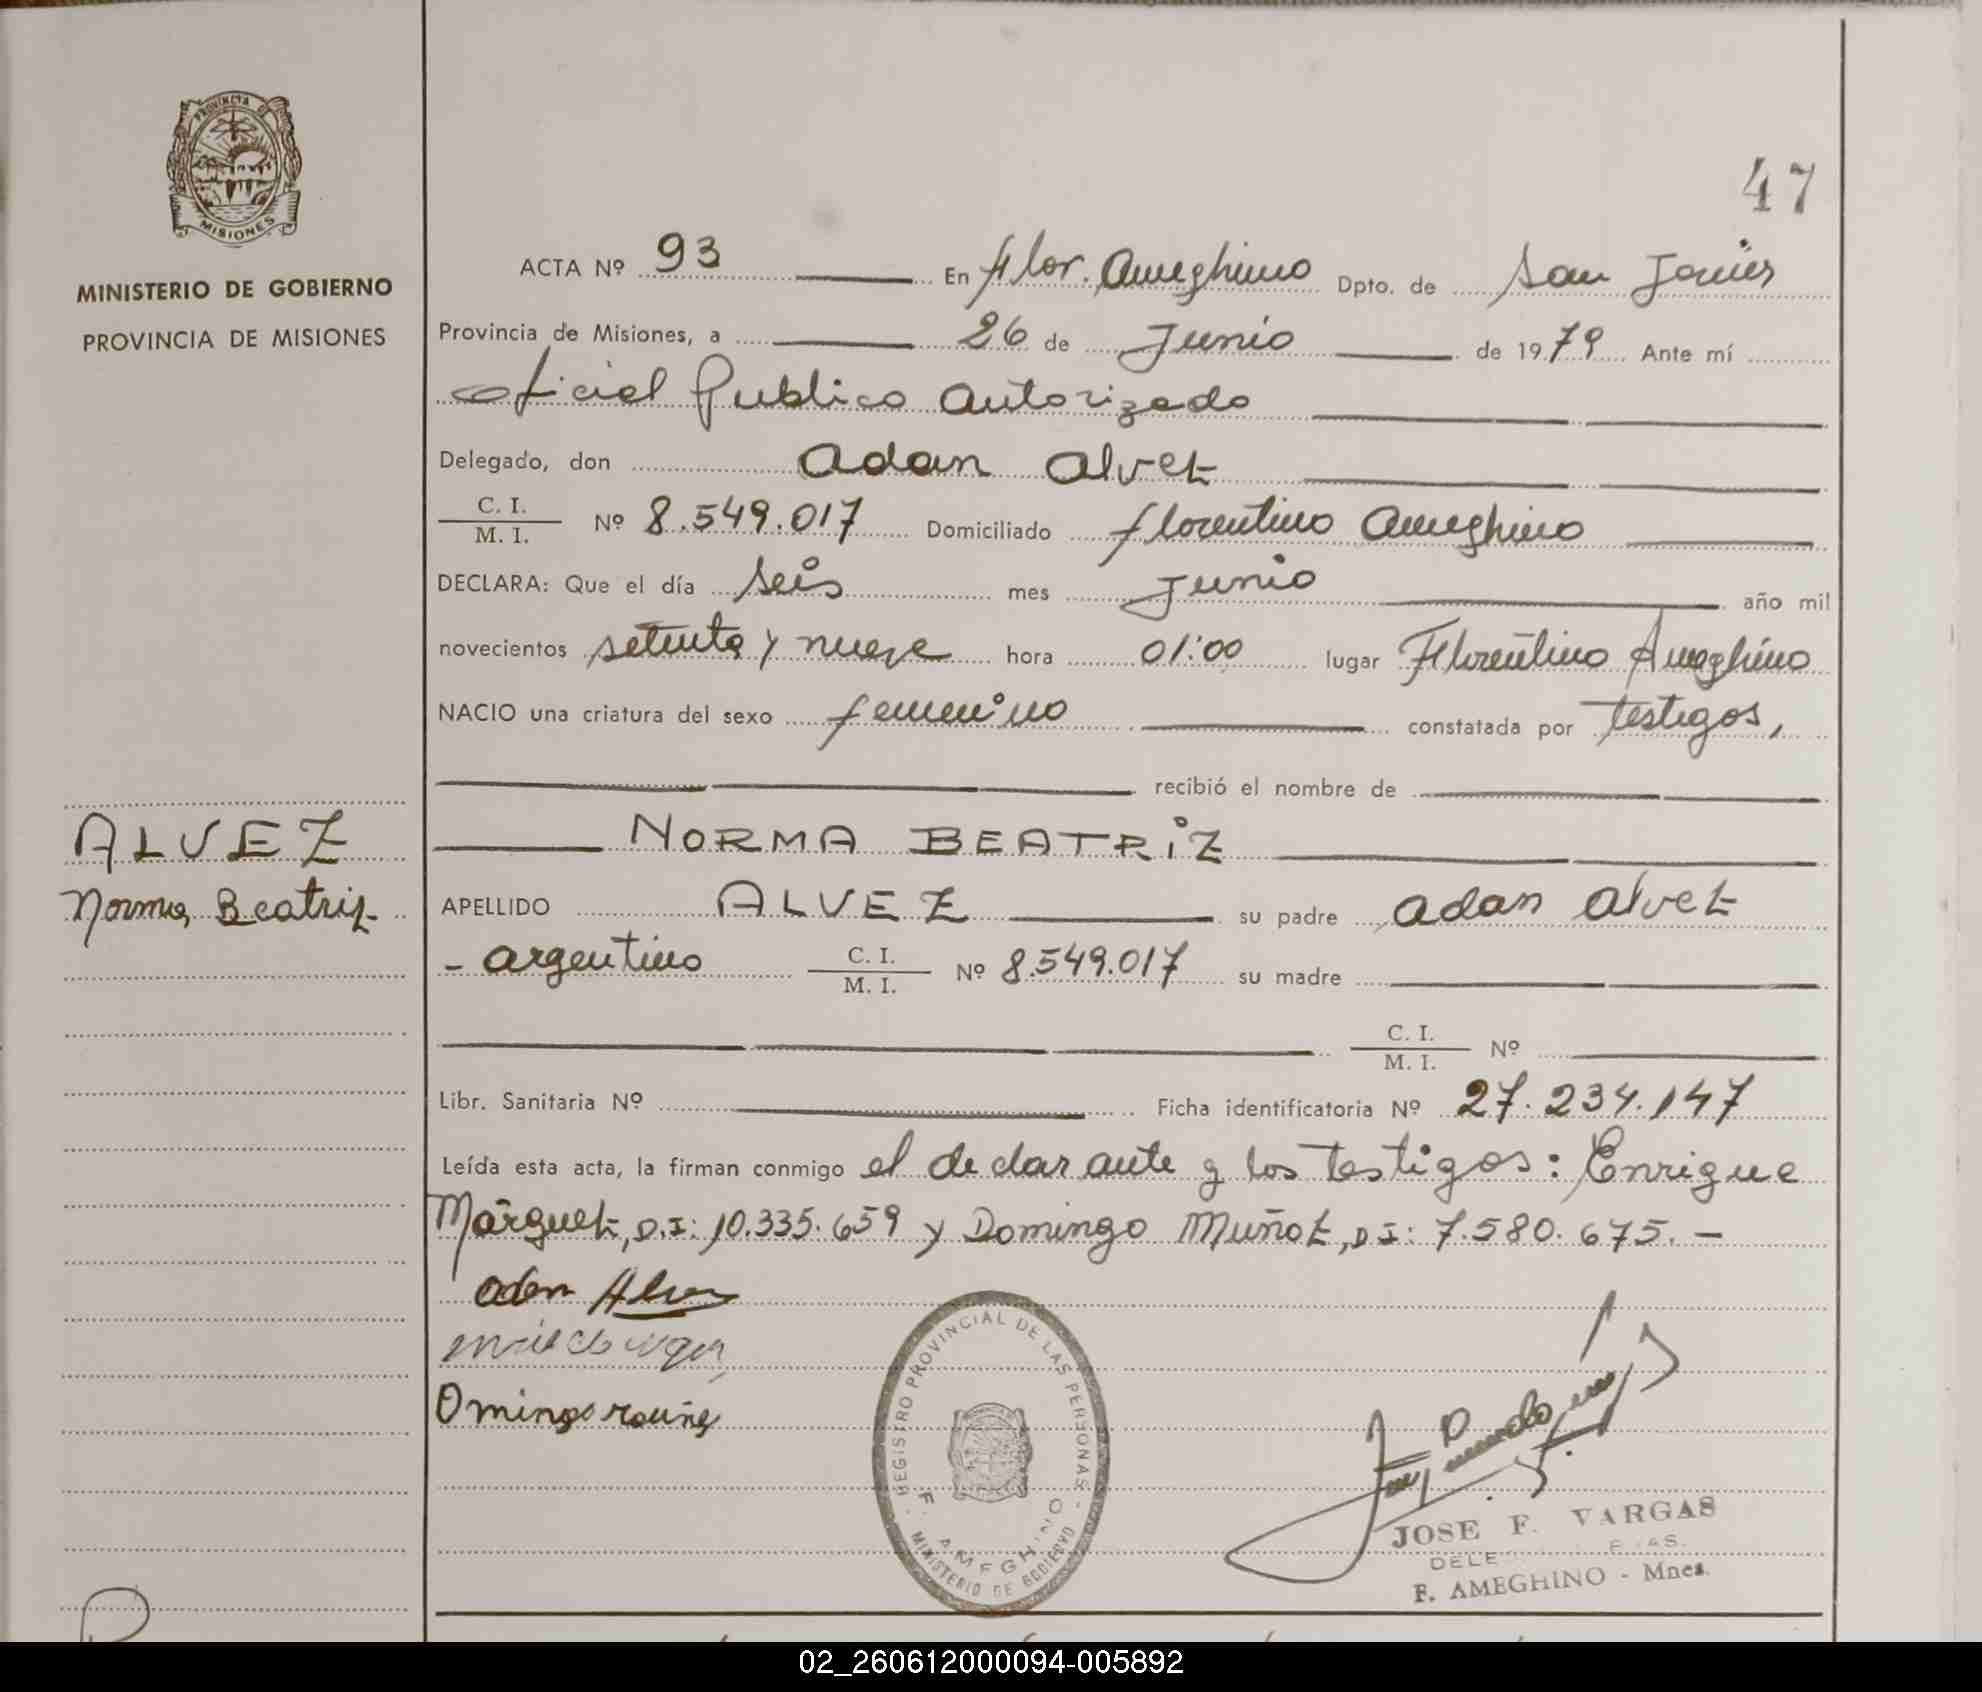 PROVINCIA DE
MISIONES
MINISTERIO DE GOBIERNO
PROVINCIA DE MISIONES
ALVEZ
Norma Beatriz
47
ACTA Nº 93 En Flor. Ameghino Dpto. de San Javier
Provincia de Misiones, a 26 de Junio de 1979 Ante mí
oficial Publico autorizado
Delegado, don Adan Alvez
C. I.
M. I. Nº 8.549.017 Domiciliado florentino Ameghino
DECLARA: Que el día seis mes Junio año mil
novecientos setenta y nueve hora 01:00 lugar Florentino Ameghino
NACIO una criatura del sexo femenino constatada por testigos,
recibió el nombre de
NORMA BEATRIZ
APELLIDO ALVEZ su padre Adan Alvez
- argentino C. I.
M. I. Nº 8.549.017 su madre
C. I.
M. I. Nº
Libr. Sanitaria Nº Ficha identificatoria Nº 27.234.147
Leída esta acta, la firman conmigo el declarante y los testigos: Enrique
Márquez, D.I: 10.335.659 y Domingo Muñoz, DI: 7.580.675. -
adan Alvez
REGISTRO PROVINCIAL DE LAS PERSONAS
F. AMEGHINO
MINISTERIO DE GOBIERNO
JOSE F. VARGAS
DELE
F. AMEGHINO - Mnes.
02_260612000094-005892